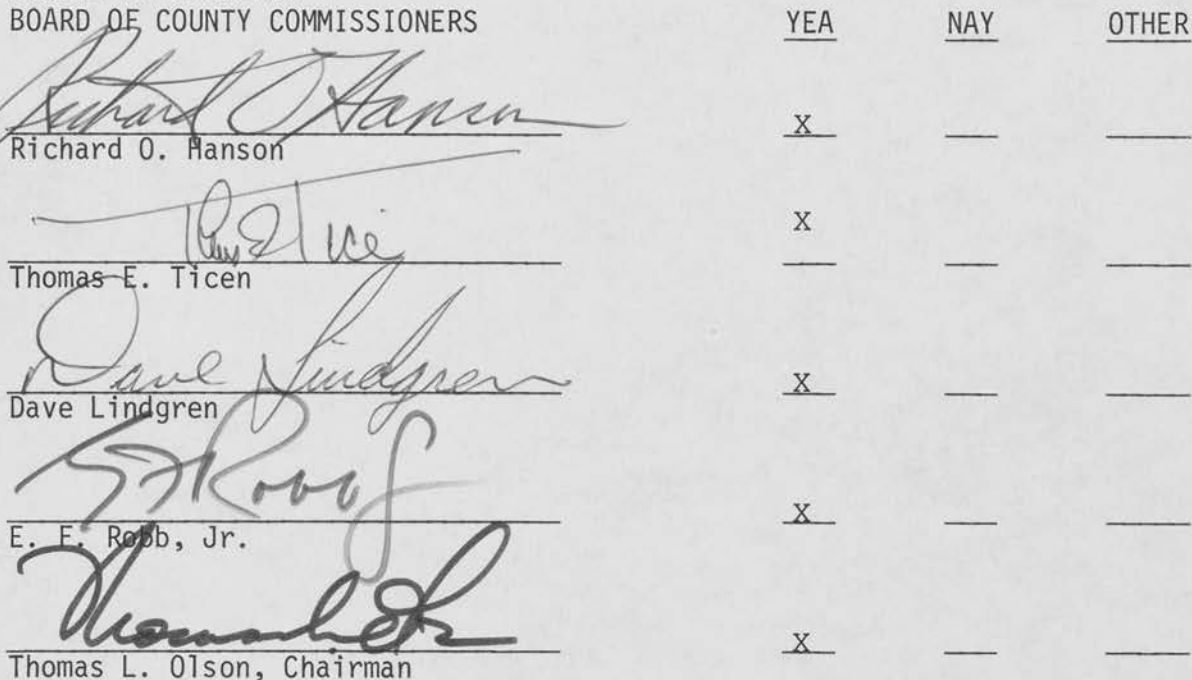 BOARD OF COUNTY COMMISSIONERS YEA NAY OTHER
Richard O Hanson X
Richard O. Hanson
Thos E Tice X
Thomas E. Ticen
Dave Lindgren X
Dave Lindgren
E F Robb Jr X
E. F. Robb, Jr.
X
Thomas L. Olson, Chairman